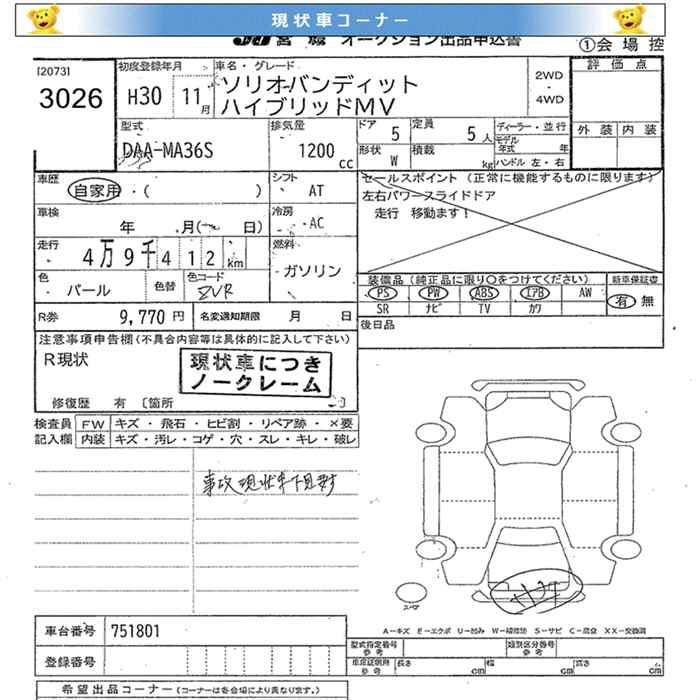 現状車コーナー
JU 宮城 オークション出品申込書
①会場控
[2073]
3026
初度登録年月
H30 11月
車名・グレード
ソリオバンディット
ハイブリッドMV
2WD
・
4WD
評価点
外装 内装
型式
DAA-MA36S
排気量
1200 cc
ドア 5
定員 5人
形状 W
積載 kg
ディーラー・並行
モデル年式 年
ハンドル 左・右
車歴
自家用・( )
シフト
AT
車検
年 月( 日)
冷房
AC
走行
4万9千412km
燃料
ガソリン
色
パール
色替
色コード
ZVR
R券 9,770円
名変通知期限 月 日
セールスポイント(正常に機能するものに限ります)
左右パワースライドドア
走行 移動ます!
装備品(純正品に限り○をつけてください)
新車保証書
PS PW ABS エアB AW
SR ナビ TV カワ
有 無
後日品
注意事項申告欄(不具合内容等は具体的に記入して下さい)
R現状
現状車につき
ノークレーム
修復歴 有 〔箇所
検査員記入欄
FW キズ・飛石・ヒビ割・リペア跡・×要
内装 キズ・汚レ・コゲ・穴・スレ・キレ・破レ
事故現状車下見対
スペア
A-キズ E-エクボ U-凹み W-補修跡 S-サビ C-腐食 XX-交換済
車台番号 751801
登録番号
型式指定番号 参考
類別区分番号 参考
車庫証明用 参考
長さ cm
幅 cm
高さ cm
希望出品コーナー(コーナーは各会場により異なります)